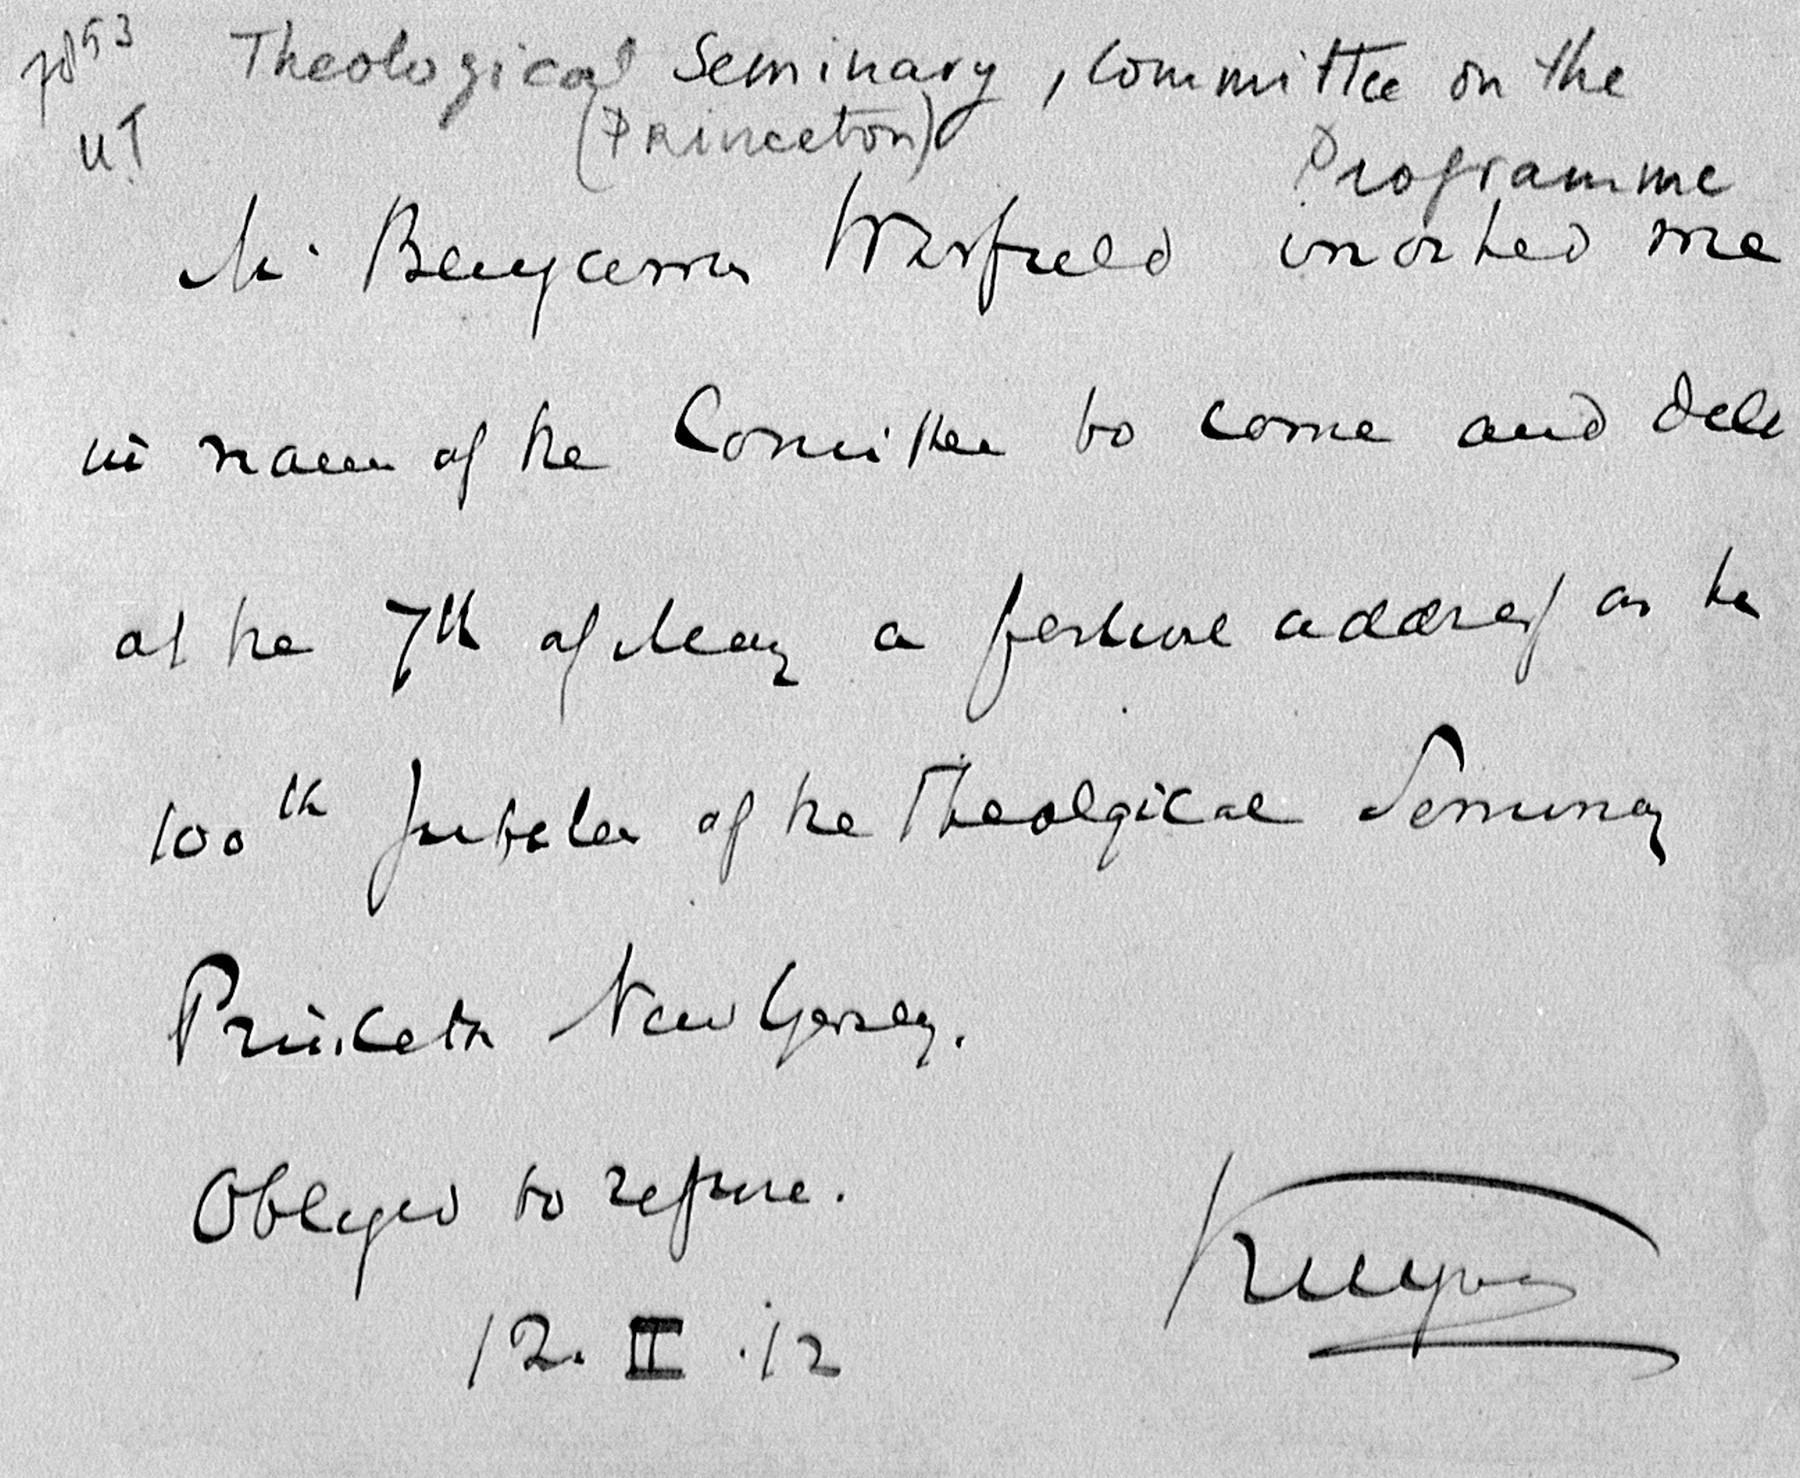 7853 Theological Seminary, Committee on the
UT (Princeton) Programme
Mr Benjamin Warfield invited me
in name of the Committee to come and dele
at the 7th of May a festive address as the
100th Jubilee of the Theolgical Seminary
Princeton New Yersey.
Obliged to refuse.
Kuyper
12.II.12